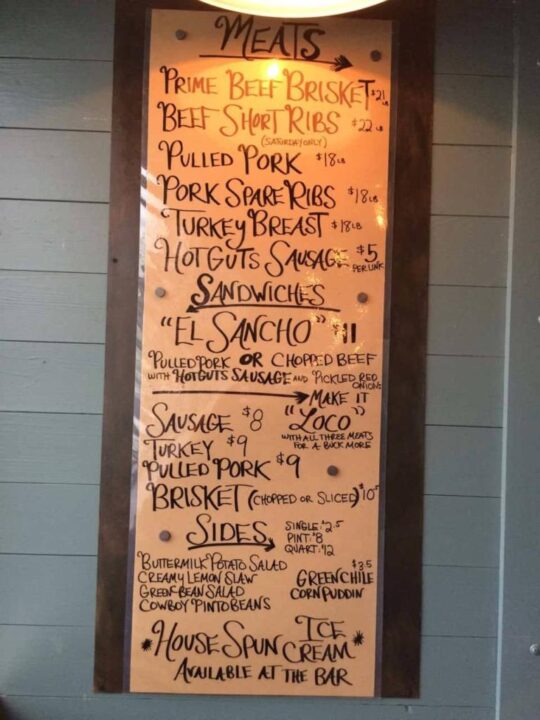 MEATS
PRIME BEEF BRISKET $21 LB
BEEF SHORT RIBS $22 LB
(SATURDAY ONLY)
PULLED PORK $18 LB
PORK SPARE RIBS $18 LB
TURKEY BREAST $18 LB
HOT GUTS SAUSAGE $5
PER LINK
SANDWICHES
"EL SANCHO" $11
PULLED PORK OR CHOPPED BEEF
WITH HOT GUTS SAUSAGE AND PICKLED RED
ONION
MAKE IT
"LOCO"
WITH ALL THREE MEATS
FOR A BUCK MORE
SAUSAGE $8
TURKEY $9
PULLED PORK $9
BRISKET (CHOPPED OR SLICED) $10
SIDES
SINGLE: $2.5
PINT: $8
QUART: $12
BUTTERMILK POTATO SALAD
CREAMY LEMON SLAW
GREEN BEAN SALAD
COWBOY PINTO BEANS
$3.5
GREEN CHILE
CORN PUDDIN
*HOUSE SPUN ICE CREAM*
AVAILABLE AT THE BAR